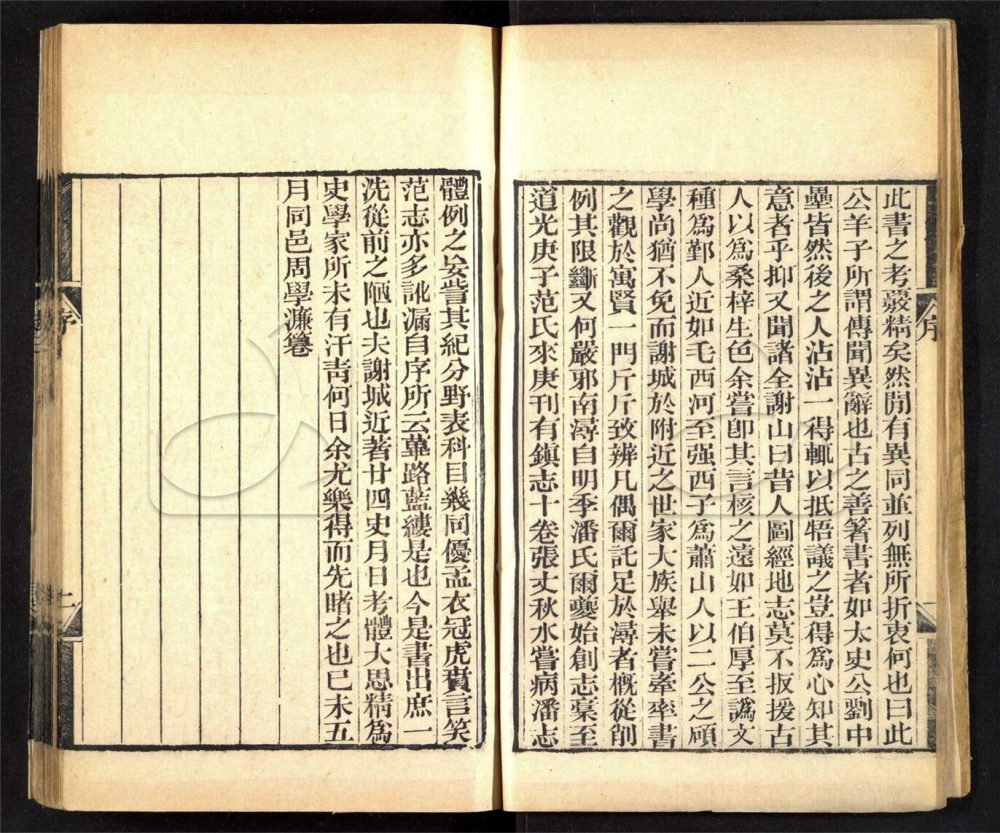 此書之考覈精矣然閒有異同並列無所折衷何也曰此
公羊子所謂傳聞異辭也古之善箸書者如太史公劉中
壘皆然後之人沾沾一得輒以抵牾議之豈得爲心知其
意者乎抑又聞諸全謝山曰昔人圖經地志莫不扳援古
人以爲桑梓生色余嘗卽其言核之遠如王伯厚至譌文
種爲鄞人近如毛西河至强西子爲蕭山人以二公之碩
學尚猶不免而謝城於附近之世家大族舉未嘗牽率書
之觀於寓賢一門斤斤致辨凡偶爾託足於潯者槪從削
例其限斷又何嚴邪南潯自明季潘氏爾夔始創志稾至
道光庚子范氏來庚刊有鎭志十卷張丈秋水嘗病潘志
體例之妄訾其紀分野表科目幾同優孟衣冠虎賁言笑
范志亦多訛漏自序所云蓽路藍縷是也今是書出庶一
洗從前之陋也夫謝城近著廿四史月日考體大思精爲
史學家所未有汗靑何日余尤樂得而先睹之也已未五
月同邑周學濂篹
序
序
一